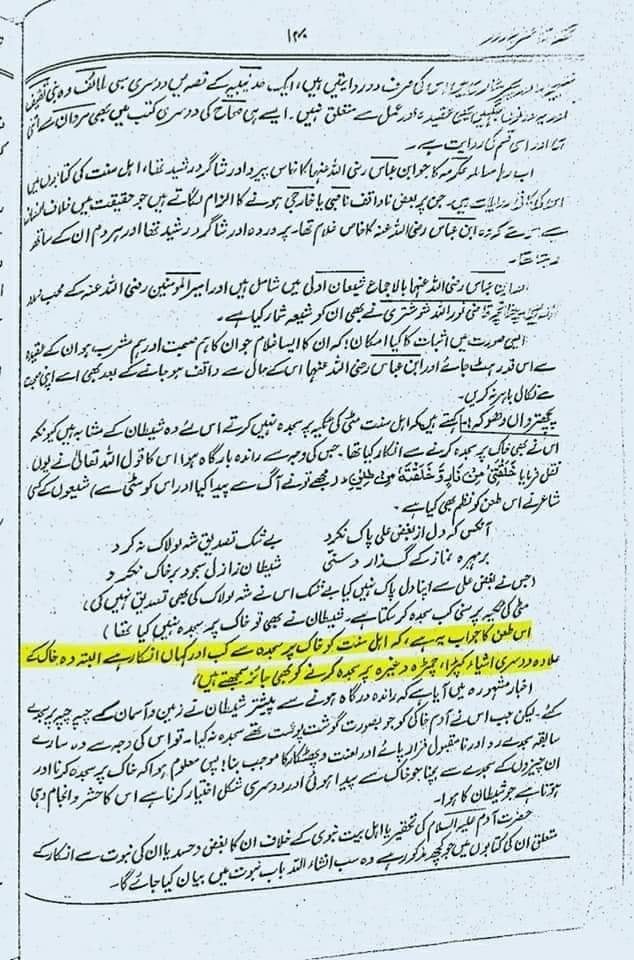 ۱۲۰
کی صرف دو روایتیں ہیں، ایک حدیبیہ کے قصہ میں دوسری سبی طائف وہ بنی ثقیف
عقیدہ اور عمل سے متعلق نہیں۔ ایسے ہی صحاح کی دوسری کتب میں بھی مروان سے اتنی
اور اسی قسم کی روایت ہے۔
اب رہا معاملہ عکرمہ کا جو ابن عباس رضی اللہ عنہما کا خاص پیرو اور شاگرد رشید تھا، اہل سنت کی کتابوں میں
روایات ہیں۔ جن پر بعض ناواقف ناصبی یا خارجی ہونے کا الزام لگاتے ہیں جو حقیقت میں خلاف
ابن عباس رضی اللہ عنہ کا خاص غلام تھا۔ پروردہ اور شاگرد رشید تھا اور ہر دم ان کے ساتھ
رہتا تھا۔
عباس رضی اللہ عنہما بالاجماع شیعان اولیٰ میں شامل ہیں اور امیر المومنین رضی اللہ عنہ کے محب
نور اللہ شوشتری نے بھی ان کو شیعہ شمار کیا ہے۔
ایسی صورت میں اثبات کا کیا امکان! کہ ان کا ایسا غلام جو ان کا ہم صحبت اور ہم مشرب ہو ان کے عقیدہ
سے اس قدر ہٹ جائے اور ابن عباس رضی اللہ عنہما اس کے حال سے واقف ہو جانے کے بعد بھی اسے اپنی
سے نکال باہر نہ کریں۔
پچھترواں دھوکہ:۔ کہتے ہیں کہ اہل سنت مٹی کی ٹکیہ پر سجدہ نہیں کرتے اس لئے وہ شیطان کے مشابہ ہیں کیونکہ
اس نے بھی خاک پر سجدہ کرنے سے انکار کیا تھا۔ جس کی وجہ سے راندہ بارگاہ ہوا اس کا قول اللہ تعالیٰ نے یوں
نقل فرمایا خَلَقْتَنِیْ مِنْ نَارٍ وَّ خَلَقْتَهٗ مِنْ طِیْنٍ، (مجھے تو نے آگ سے پیدا کیا اور اس کو مٹی سے) شیعوں کے کسی
شاعر نے اس طعن کو نظم بھی کیا ہے۔
آنکس کہ دل از بغض علی پاک نکرد بے شک تصدیق شہ لولاک نہ کرد
بر مہرہ نماز کے گذارد شیطان ز ازل سجود بر خاک نکرد
(جس نے بغض علی سے اپنا دل پاک نہیں کیا بے شک اس نے شہ لولاک کی بھی تصدیق نہیں کی)
مٹی کی ٹکیہ پر سنی کب سجدہ کر سکتا ہے۔ شیطان نے بھی تو خاک پر سجدہ نہیں کیا تھا)
اس طعن کا جواب یہ ہے، کہ اہل سنت کو خاک پر سجدہ سے کب اور کہاں انکار ہے البتہ وہ خاک کے
علاوہ دوسری اشیاء کپڑا، چمڑہ وغیرہ پر سجدہ کرنے کو بھی جائز سمجھتے ہیں،
اخبار مشہورہ میں آیا ہے کہ راندہ درگاہ ہونے سے پیشتر شیطان نے زمین و آسمان کے چپہ چپہ پر سجدے
کئے۔ لیکن جب اس نے آدم خاکی کو جو بصورت گوشت پوست تھے سجدہ نہ کیا۔ تو اس کی وجہ سے وہ سارے
سابقہ سجدے رد اور نا مقبول قرار پائے اور لعنت و پھٹکار کا موجب بنا! پس معلوم ہوا کہ خاک پر سجدہ کرنا اور
ان چیزوں کے سجدے سے بچنا جو خاک سے پیدا ہوئی اور دوسری شکل اختیار کرنا ہے اس کا حشر و انجام وہی
ہوتا ہے جو شیطان کا ہوا۔
حضرت آدم علیہ السلام کی تحقیر یا اہل بیت نبوی کے خلاف ان کا بغض و حسد یا ان کی نبوت سے انکار کے
متعلق ان کی کتابوں میں جو کچھ مذکور ہے وہ سب انشاء اللہ باب نبوت میں بیان کیا جائے گا۔